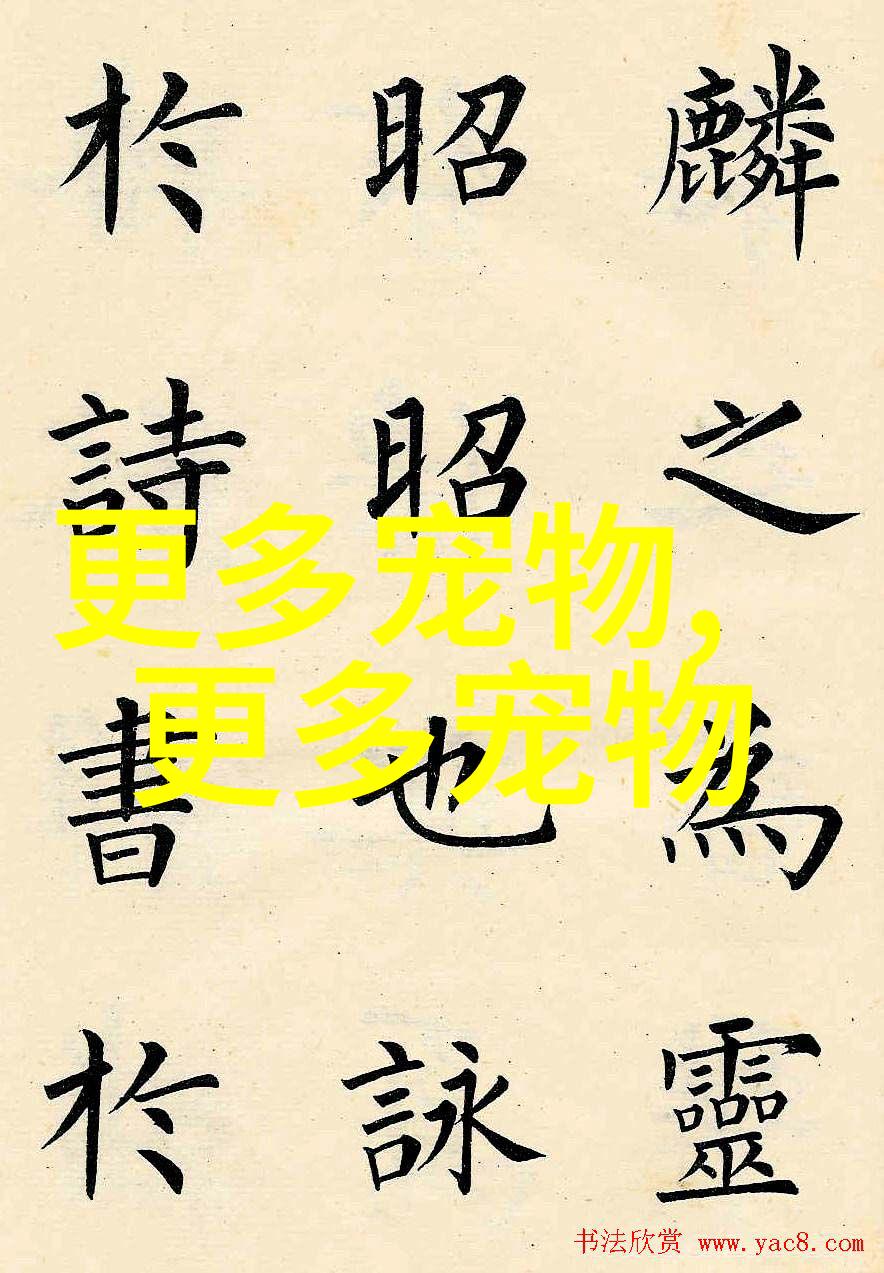 麟之為靈
昭昭也詠
於詩書於
更多宠物,
更多宠物
书法欣赏 www.yac8.com